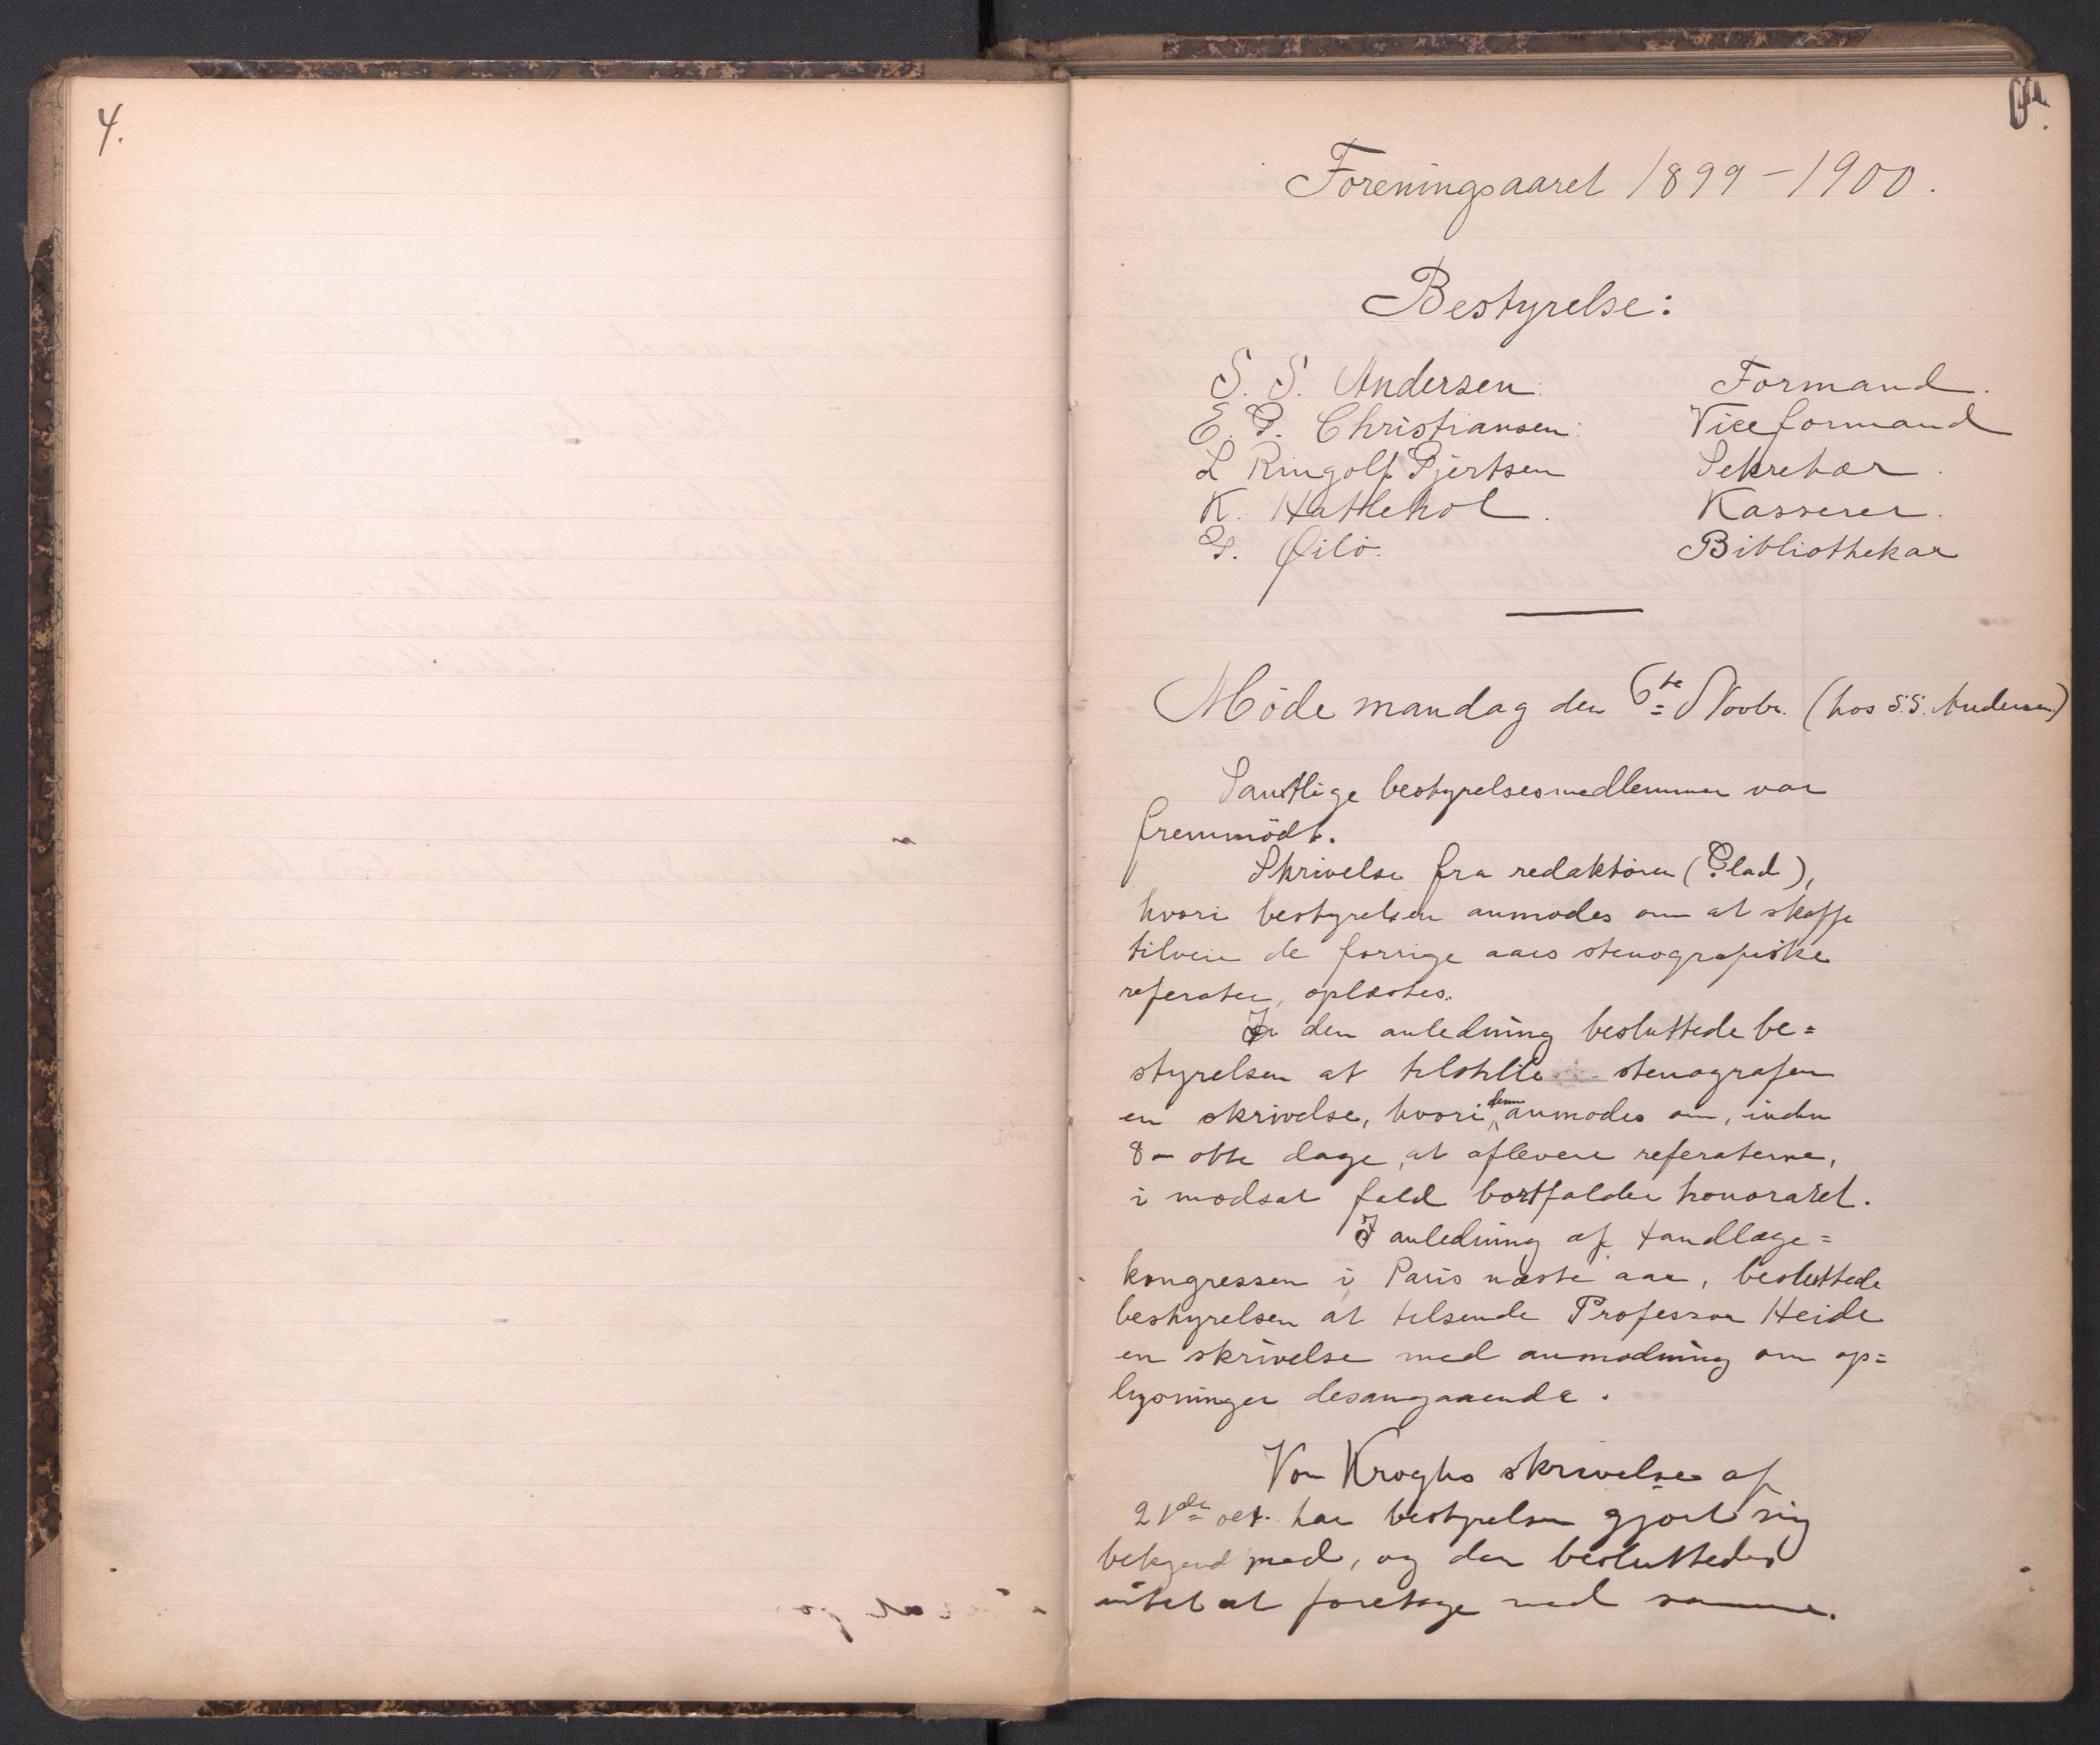 4.
Foreningsaaret 1899-1900.
Bestyrelse:
S. S. Andersen. Formand.
E. P. Christiansen. Viceformand
L Ringolf Gjertsen Sekretær.
K. Hatlehol. Kasserer.
G. Öilö. Bibliothekar
Möde mandag den 6te Novbr. (hos S.S. Andersen)
Samtlige bestyrelsesmedlemmer var
fremmödt.
Skrivelse fra redaktören (Glad),
hvori bestyrelsen anmodes om at skaffe
tilveie de forrige aars stenografiske
referater, oplæstes.
I den anledning besluttede be=
styrelsen at tilstille stenografen
en skrivelse, hvori denne anmodes om, inden
8 - otte dage, at aflevere referaterne,
i modsat fald bortfalder honoraret.
I anledning af tandlæge=
kongressen i Paris næste aar, besluttede
bestyrelsen at tilsende Professor Heide
en skrivelse med anmodning om op=
lysninger desangaaende.
Von Kroghs skrivelse af
21de oct. har bestyrelsen gjort sig
bekjend med, og der besluttedes
intet at foretage med samme.